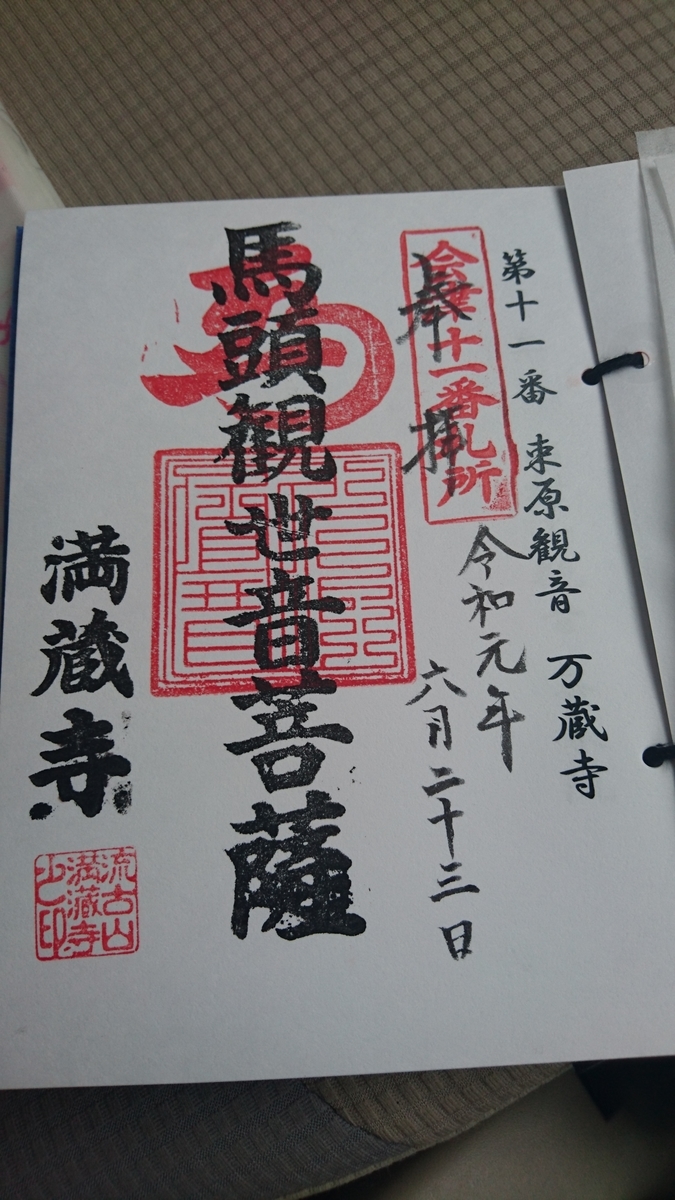 第十一番 束原観音 万蔵寺
会津十一番札所
奉拝
令和元年
六月二十三日
馬頭観世音菩薩
満蔵寺
流古山
満蔵寺
之印